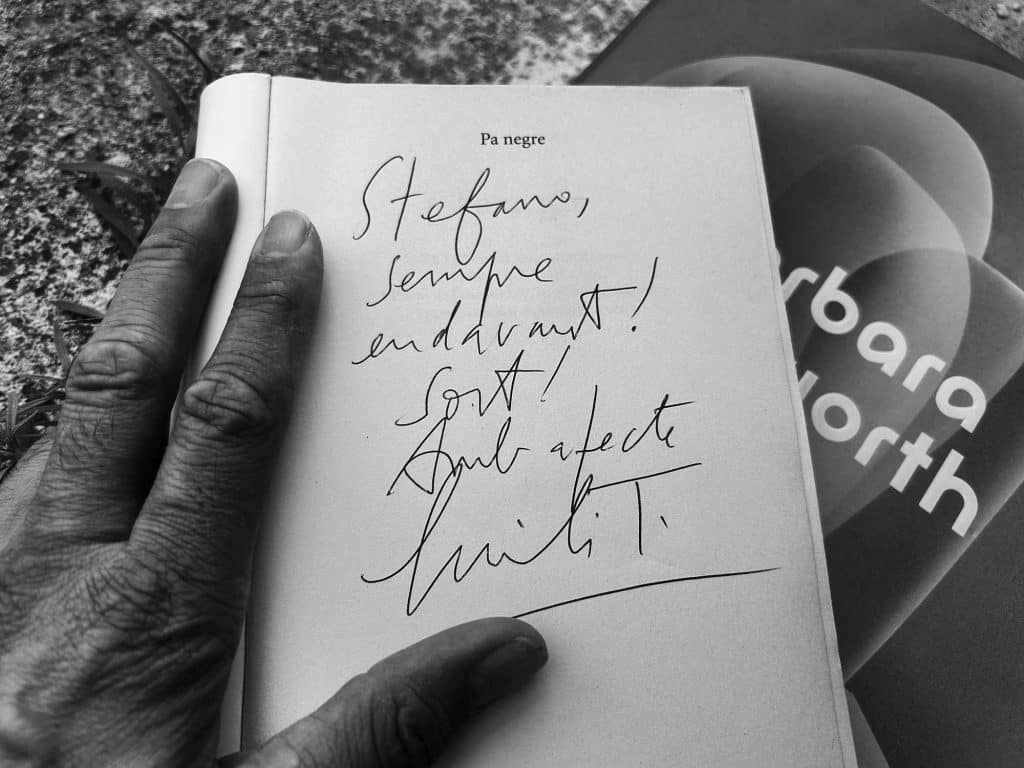 Pa negre
Stefano,
sempre
endavant!
Sort!
Amb afecte
Emili T.
rbara
North